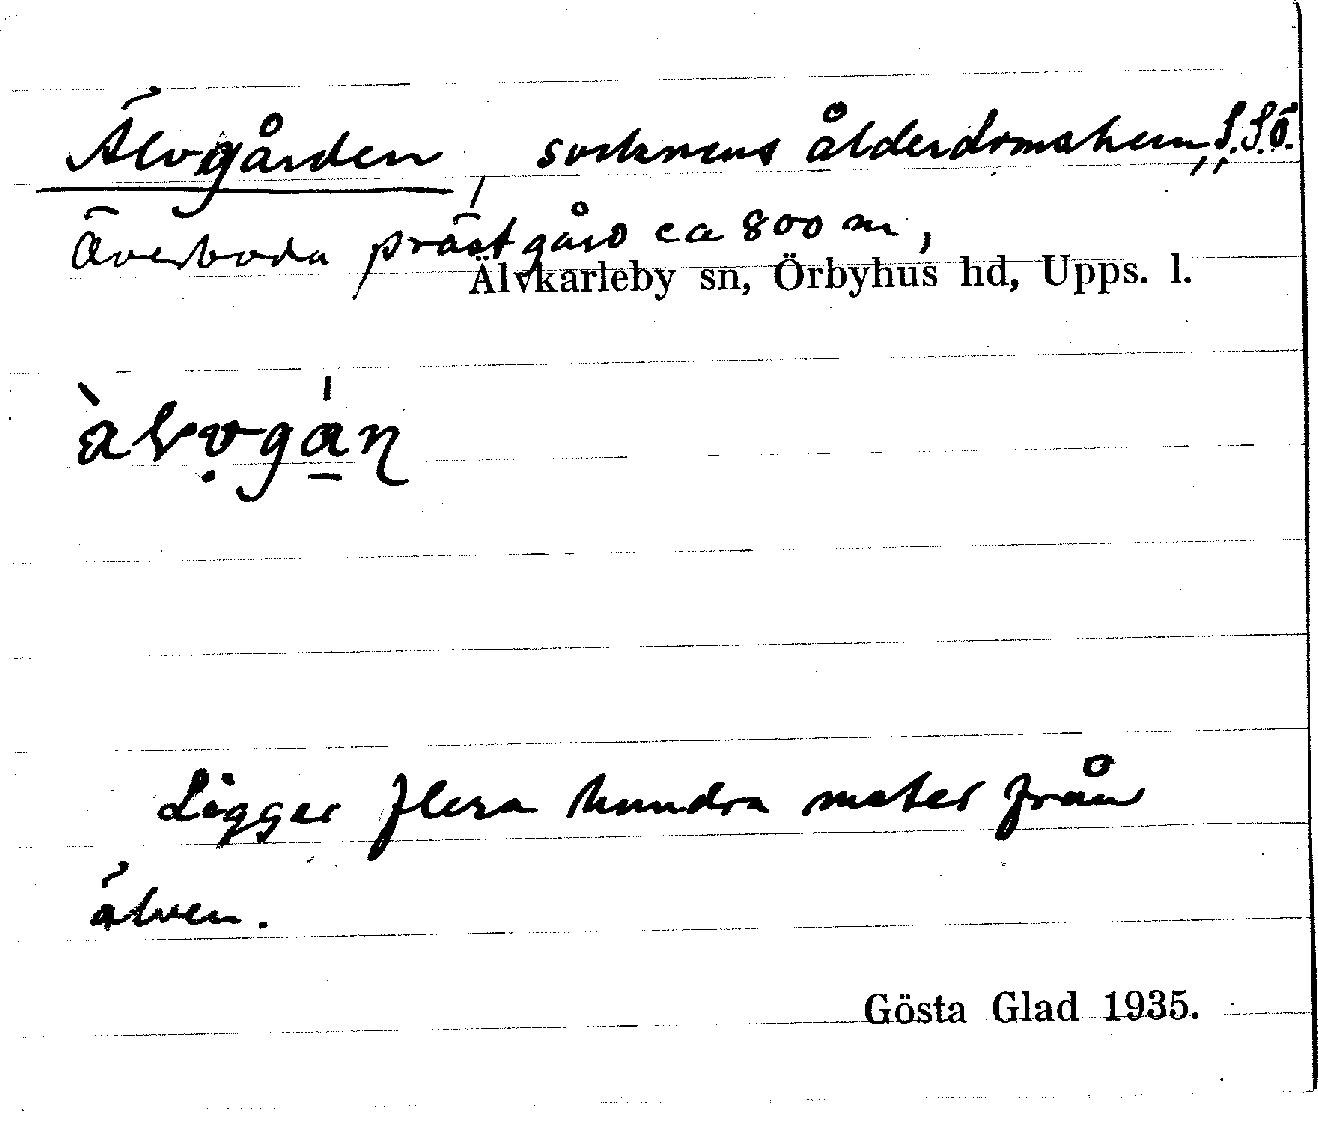 Älvgården, socknens ålderdomshem, S.S.Ö.
Överboda prästgård ca 800 m,
Älvkarleby sn, Örbyhus hd, Upps. l.
Ligger flera hundra meter från
älven.
Gösta Glad 1935.